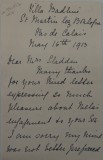 Villa Madrid
St Martin les Boulogne
Pas de Calais
May 16th 1913
Dear Mrs Sladden
Many thanks
for your kind letter
expressing so much
pleasure about
engagement to your
I am sorry my
was not better prepared